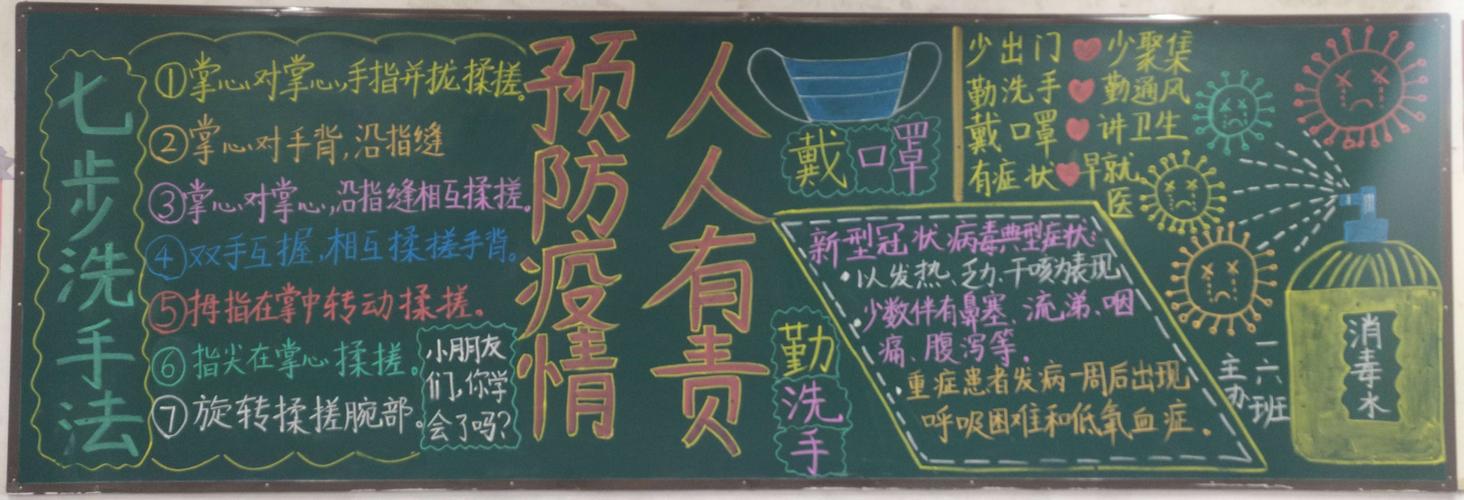 七步洗手法
①掌心对掌心,手指并拢揉搓。
②掌心对手背,沿指缝
③掌心对掌心,沿指缝相互揉搓。
④双手互握,相互揉搓手背。
⑤拇指在掌中转动揉搓。
⑥指尖在掌心揉搓。
⑦旋转揉搓腕部。
小朋友
们,你学
会了吗?
预防疫情
人人有责
戴口罩
勤洗手
少出门 少聚集
勤洗手 勤通风
戴口罩 讲卫生
有症状 早就
医
新型冠状病毒典型症状:
·以发热、乏力、干咳为表现
·少数伴有鼻塞、流涕、咽
痛、腹泻等.
·重症患者发病一周后出现
呼吸困难和低氧血症.
一六班
主办
消毒水